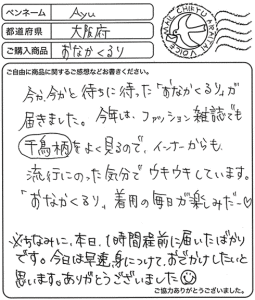 ペンネーム Ayu
都道府県 大阪府
ご購入商品 おなかくるり
ご自由に商品に関するご感想などお書きください。
今か今かと待ちに待った「おなかくるり」が
届きました。今年は、ファッション雑誌でも
千鳥柄をよく見るので、インナーからも
流行にのった気分でウキウキしています。
「おなかくるり」着用の毎日が楽しみだー♡
※ちなみに、本日、1時間程前に届いたばかり
です。今日は早速、身につけて、おでかけしたいと
思います。ありがとうございました☺
ご協力ありがとうございました。